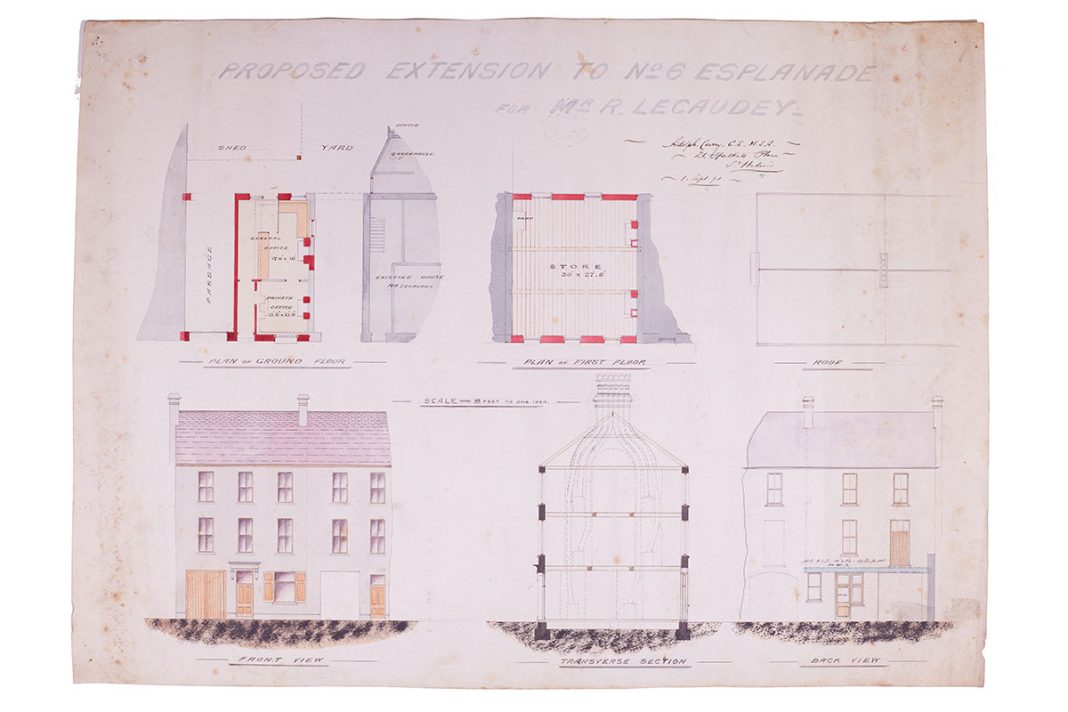 PROPOSED EXTENSION TO No 6 ESPLANADE
FOR Mr R. LECAUDEY.
Adolph Curry. C.E. M.S.A.
St Helier's
1. Sept 91.
SHED
YARD
OFFICE
PASSAGE
GENERAL
OFFICE
PRIVATE
OFFICE
EXISTING HOUSE
Mr LECAUDEY
STORE
30' x 27.6
PLAN OF GROUND FLOOR
PLAN OF FIRST FLOOR
ROOF
SCALE 8 FEET TO ONE INCH.
FRONT VIEW
TRANSVERSE SECTION
BACK VIEW